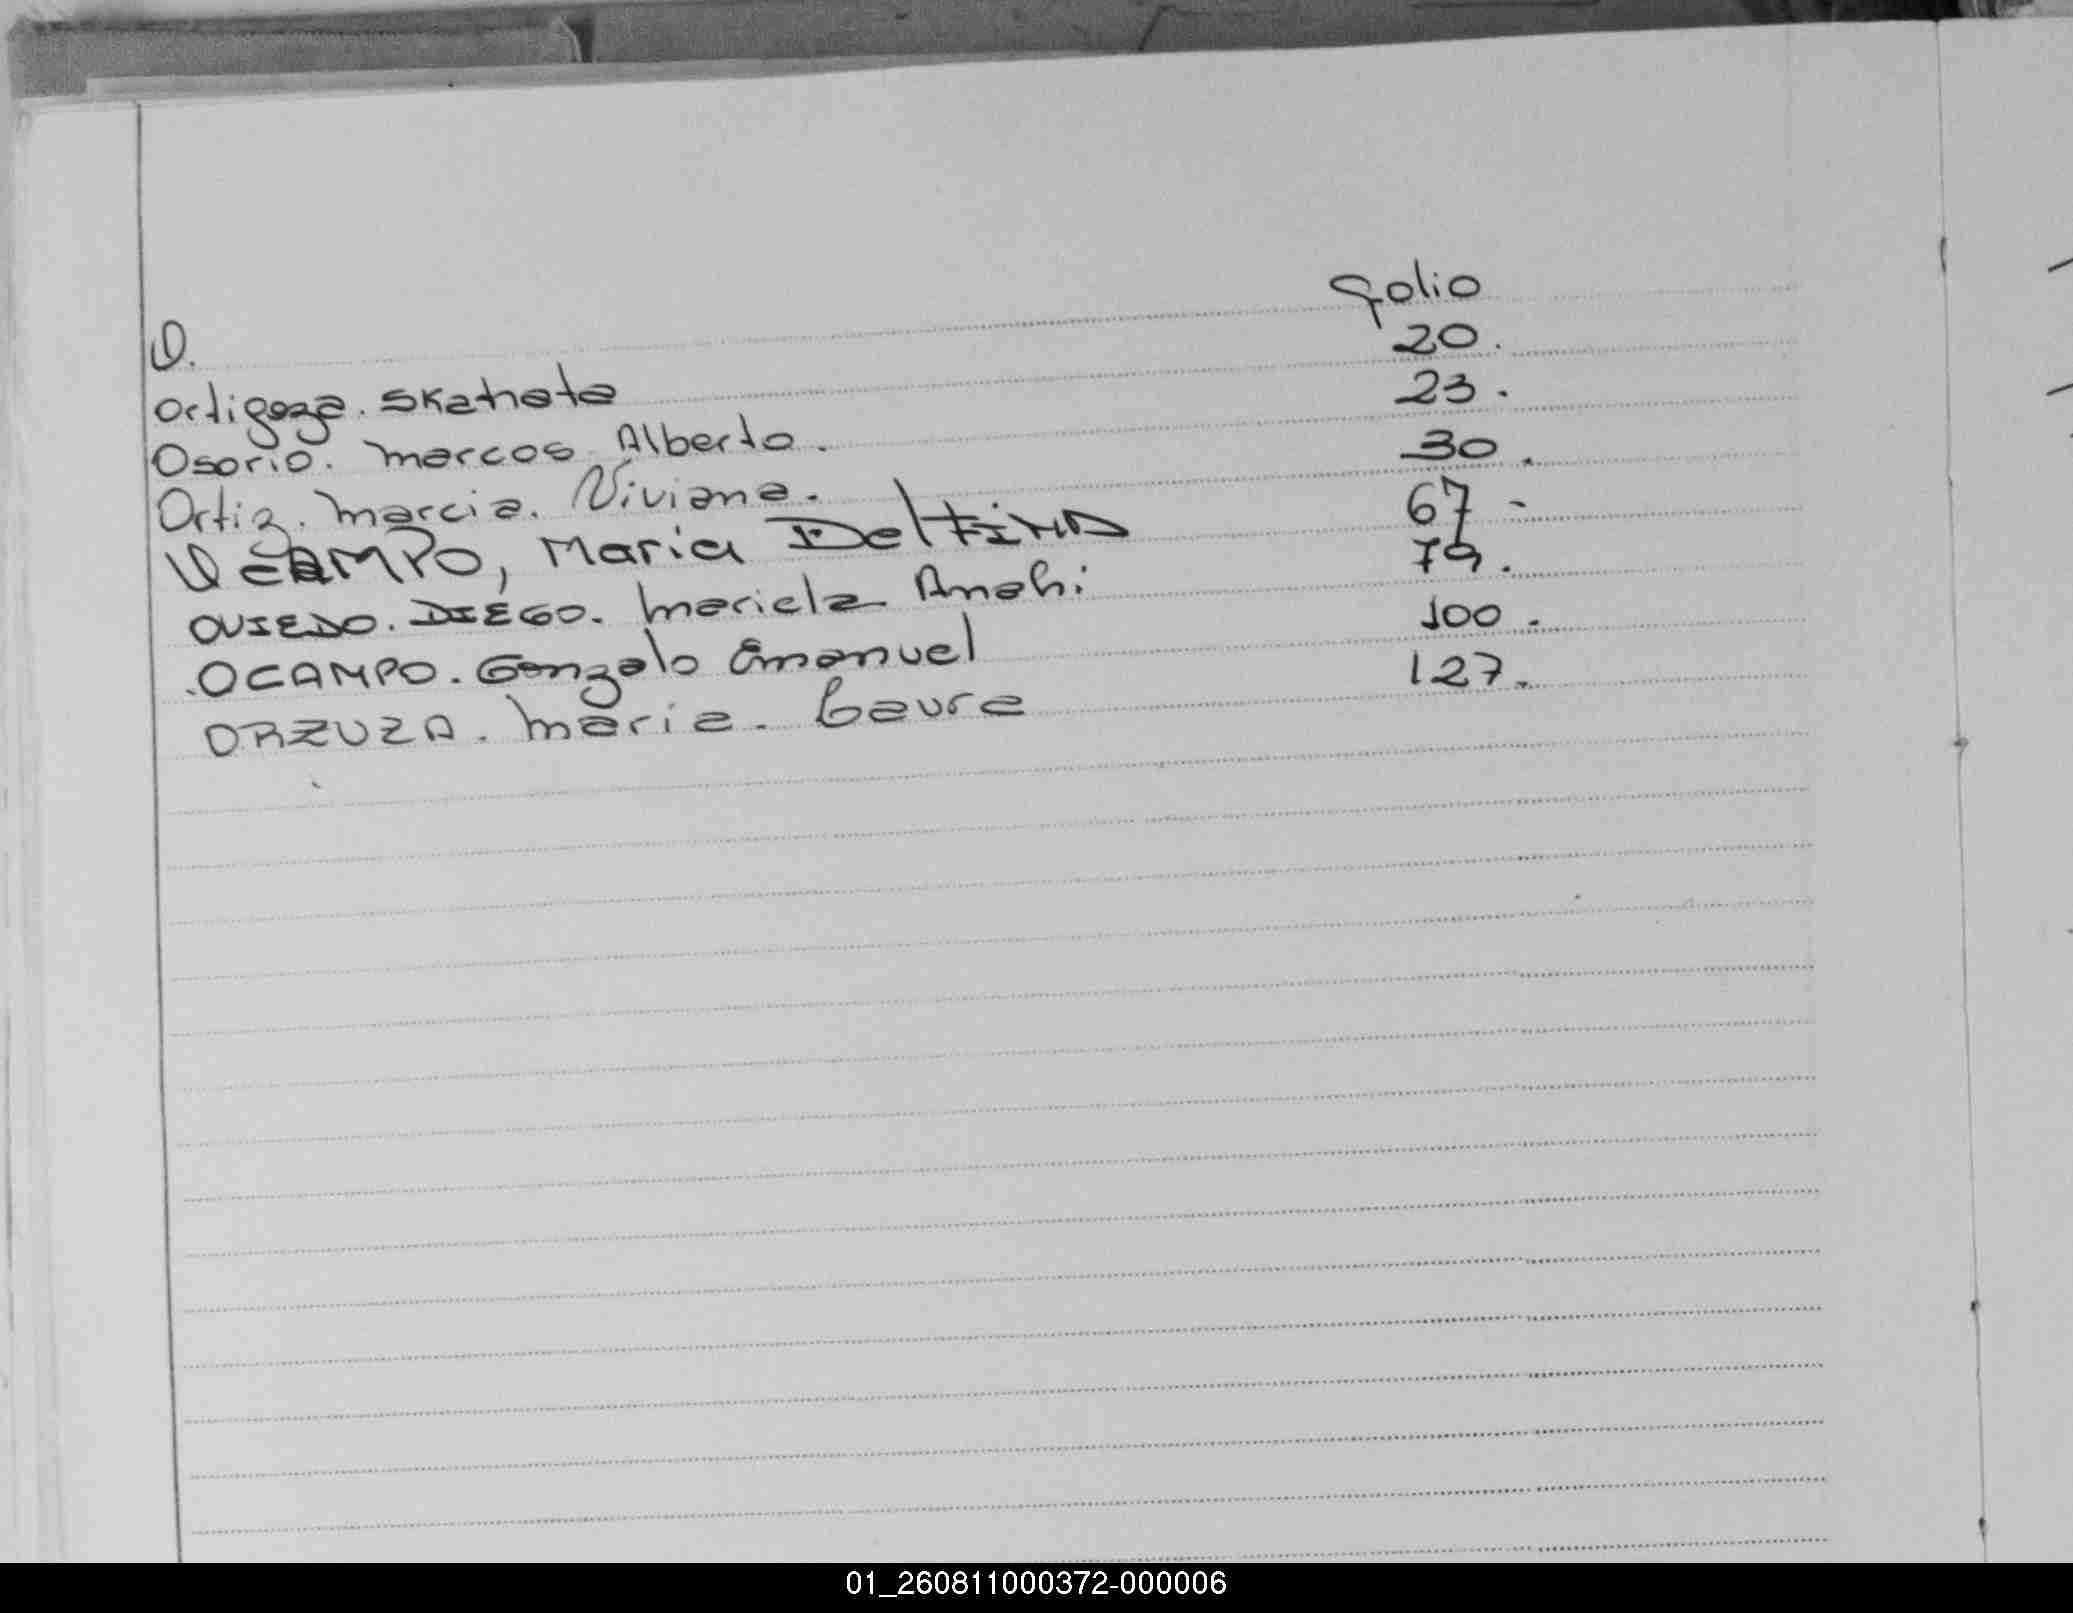 O. folio
Ortigoza. Skahata 20.
Osorio. Marcos Alberto. 23.
Ortiz. Marcia. Viviana. 30.
OCAMPO, Maria DelfINA 67-
OVIEDO. DIEGO. Mariela Anahi 79.
OCAMPO. Gonzalo Emanuel 100.
ORZUZA. Maria. Laura 127.
01_260811000372-000006